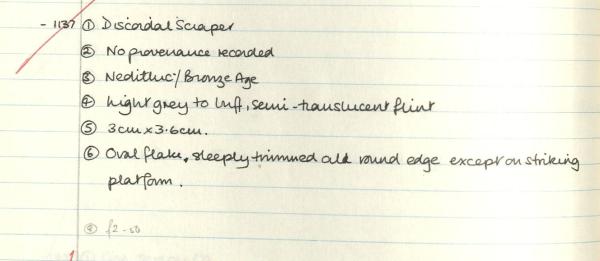 - 1137 ① Discoidal Scraper
② No provenance recorded
③ Neolithic/Bronze Age
④ Light grey to buff, semi-translucent flint
⑤ 3cm x 3.6cm.
⑥ Oval flake, steeply trimmed all round edge except on striking
platform.
f2-50